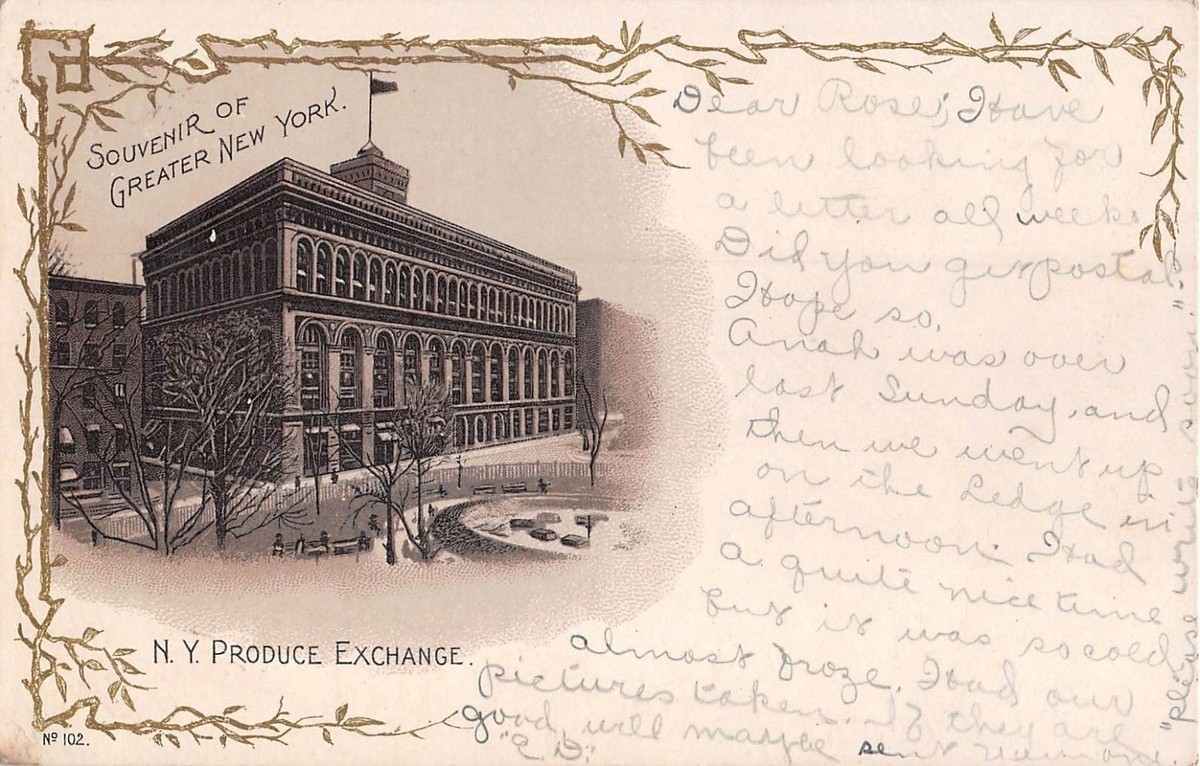 SOUVENIR OF
GREATER NEW YORK.
N. Y. PRODUCE EXCHANGE.
Nº 102.
Dear Rose; I Have
been looking for
a letter all week.
Did you get postal
I Hope so.
Anah was over
last Sunday, and
then we went up
on the Ledge in
afternoon. I Had
a quite nice time
but it was so cold
almost froze. I Had our
pictures taken. If they are
good, will maybe sent you one.
"E. D."
"please write soon"